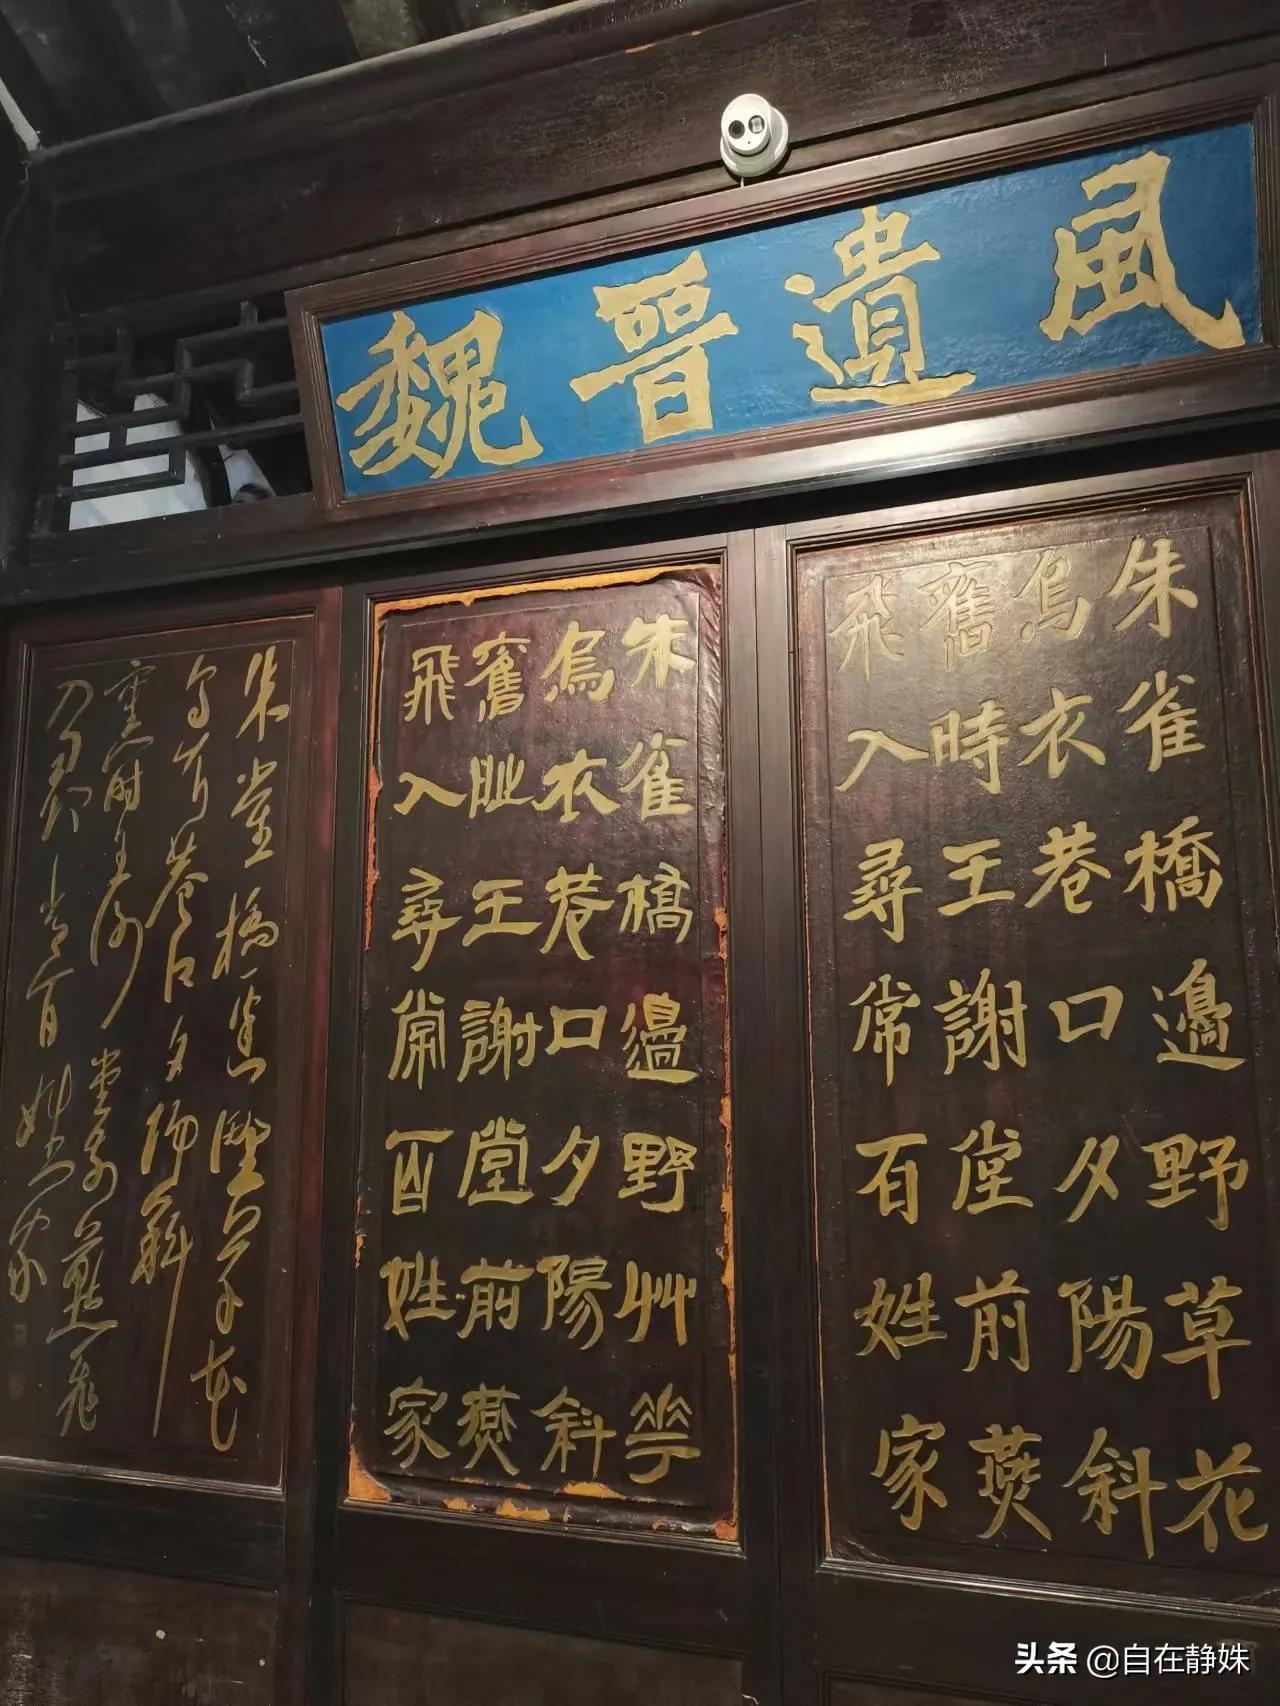 魏晉遺風
朱雀橋邊野草花
烏衣巷口夕陽斜
舊時王謝堂前燕
飛入尋常百姓家
朱雀橋邊野艸華
烏衣巷口夕陽斜
舊時王謝堂前燕
飛入尋常百姓家
朱雀橋邊野草花
烏衣巷口夕陽斜
舊時王謝堂前燕飛
入尋常百姓家
头条 @自在静姝